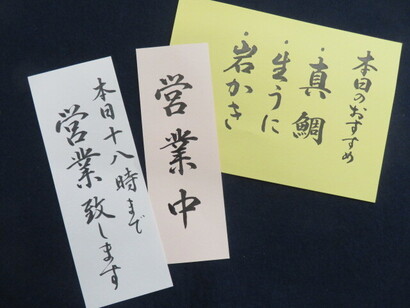 本日のおすすめ
・真鯛
・生うに
・岩かき
営業中
本日十八時まで
営業致します